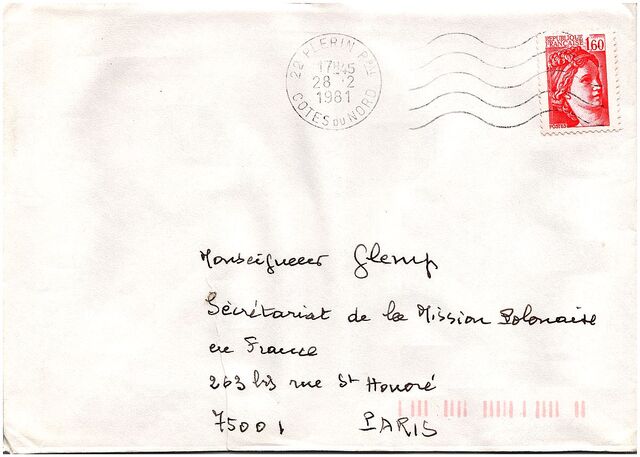 22 PLERIN PPAL
17H45
28 2
1981
COTES DU NORD
REPUBLIQUE
FRANCAISE 1,60
POSTES
Monseigneur Glemp
Sécrétariat de la Mission Polonaise
en France
263 bis rue St Honoré
75001 PARIS